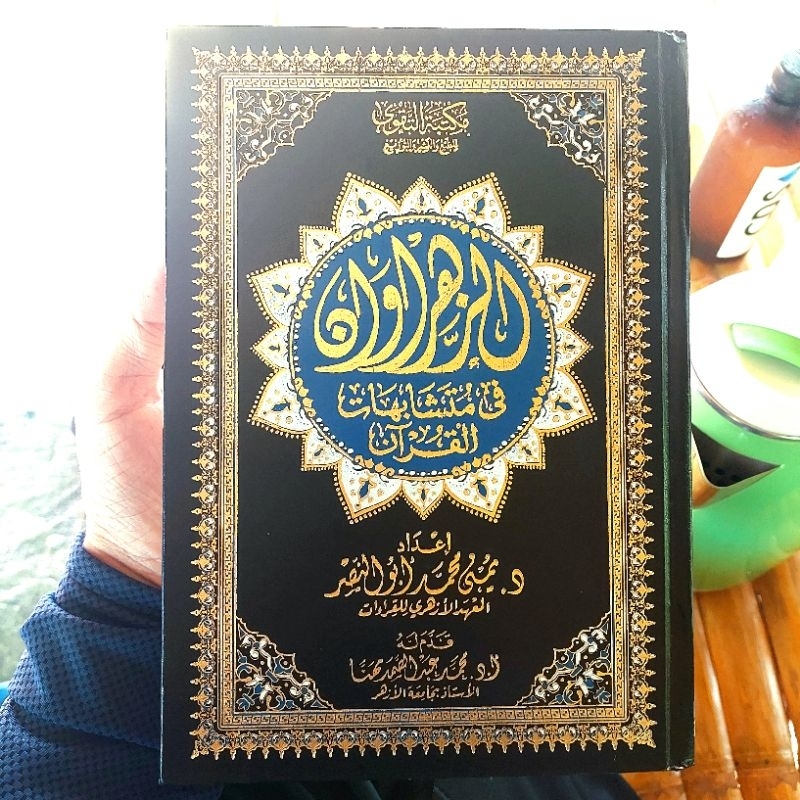 مكتبة التقوى
للطبع والنشر والتوزيع
الزهراوان
في متشابهات
القرآن
إعداد
د. يمنى محمد أبو النصر
المعهد الأزهري للقراءات
قدم له
أ.د. محمد عبد الصمد مهنا
الأستاذ بجامعة الأزهر